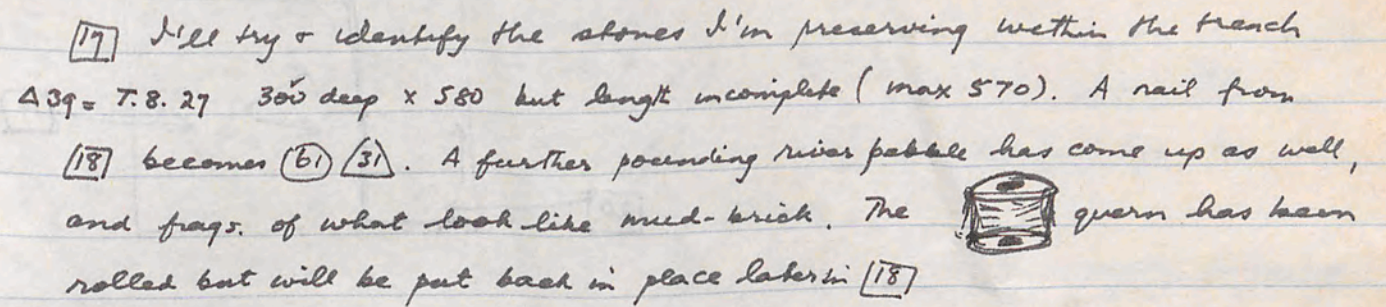 [17] I'll try & identify the stones I'm preserving within the trench
Δ39 = T.8.27 300 deep x 580 but length incomplete (max 570). A nail from
[18] becomes (61) /31\. A further pounding river pebble has come up as well,
and frags. of what look like mud-brick. The quern has been
rolled but will be put back in place later in [18]